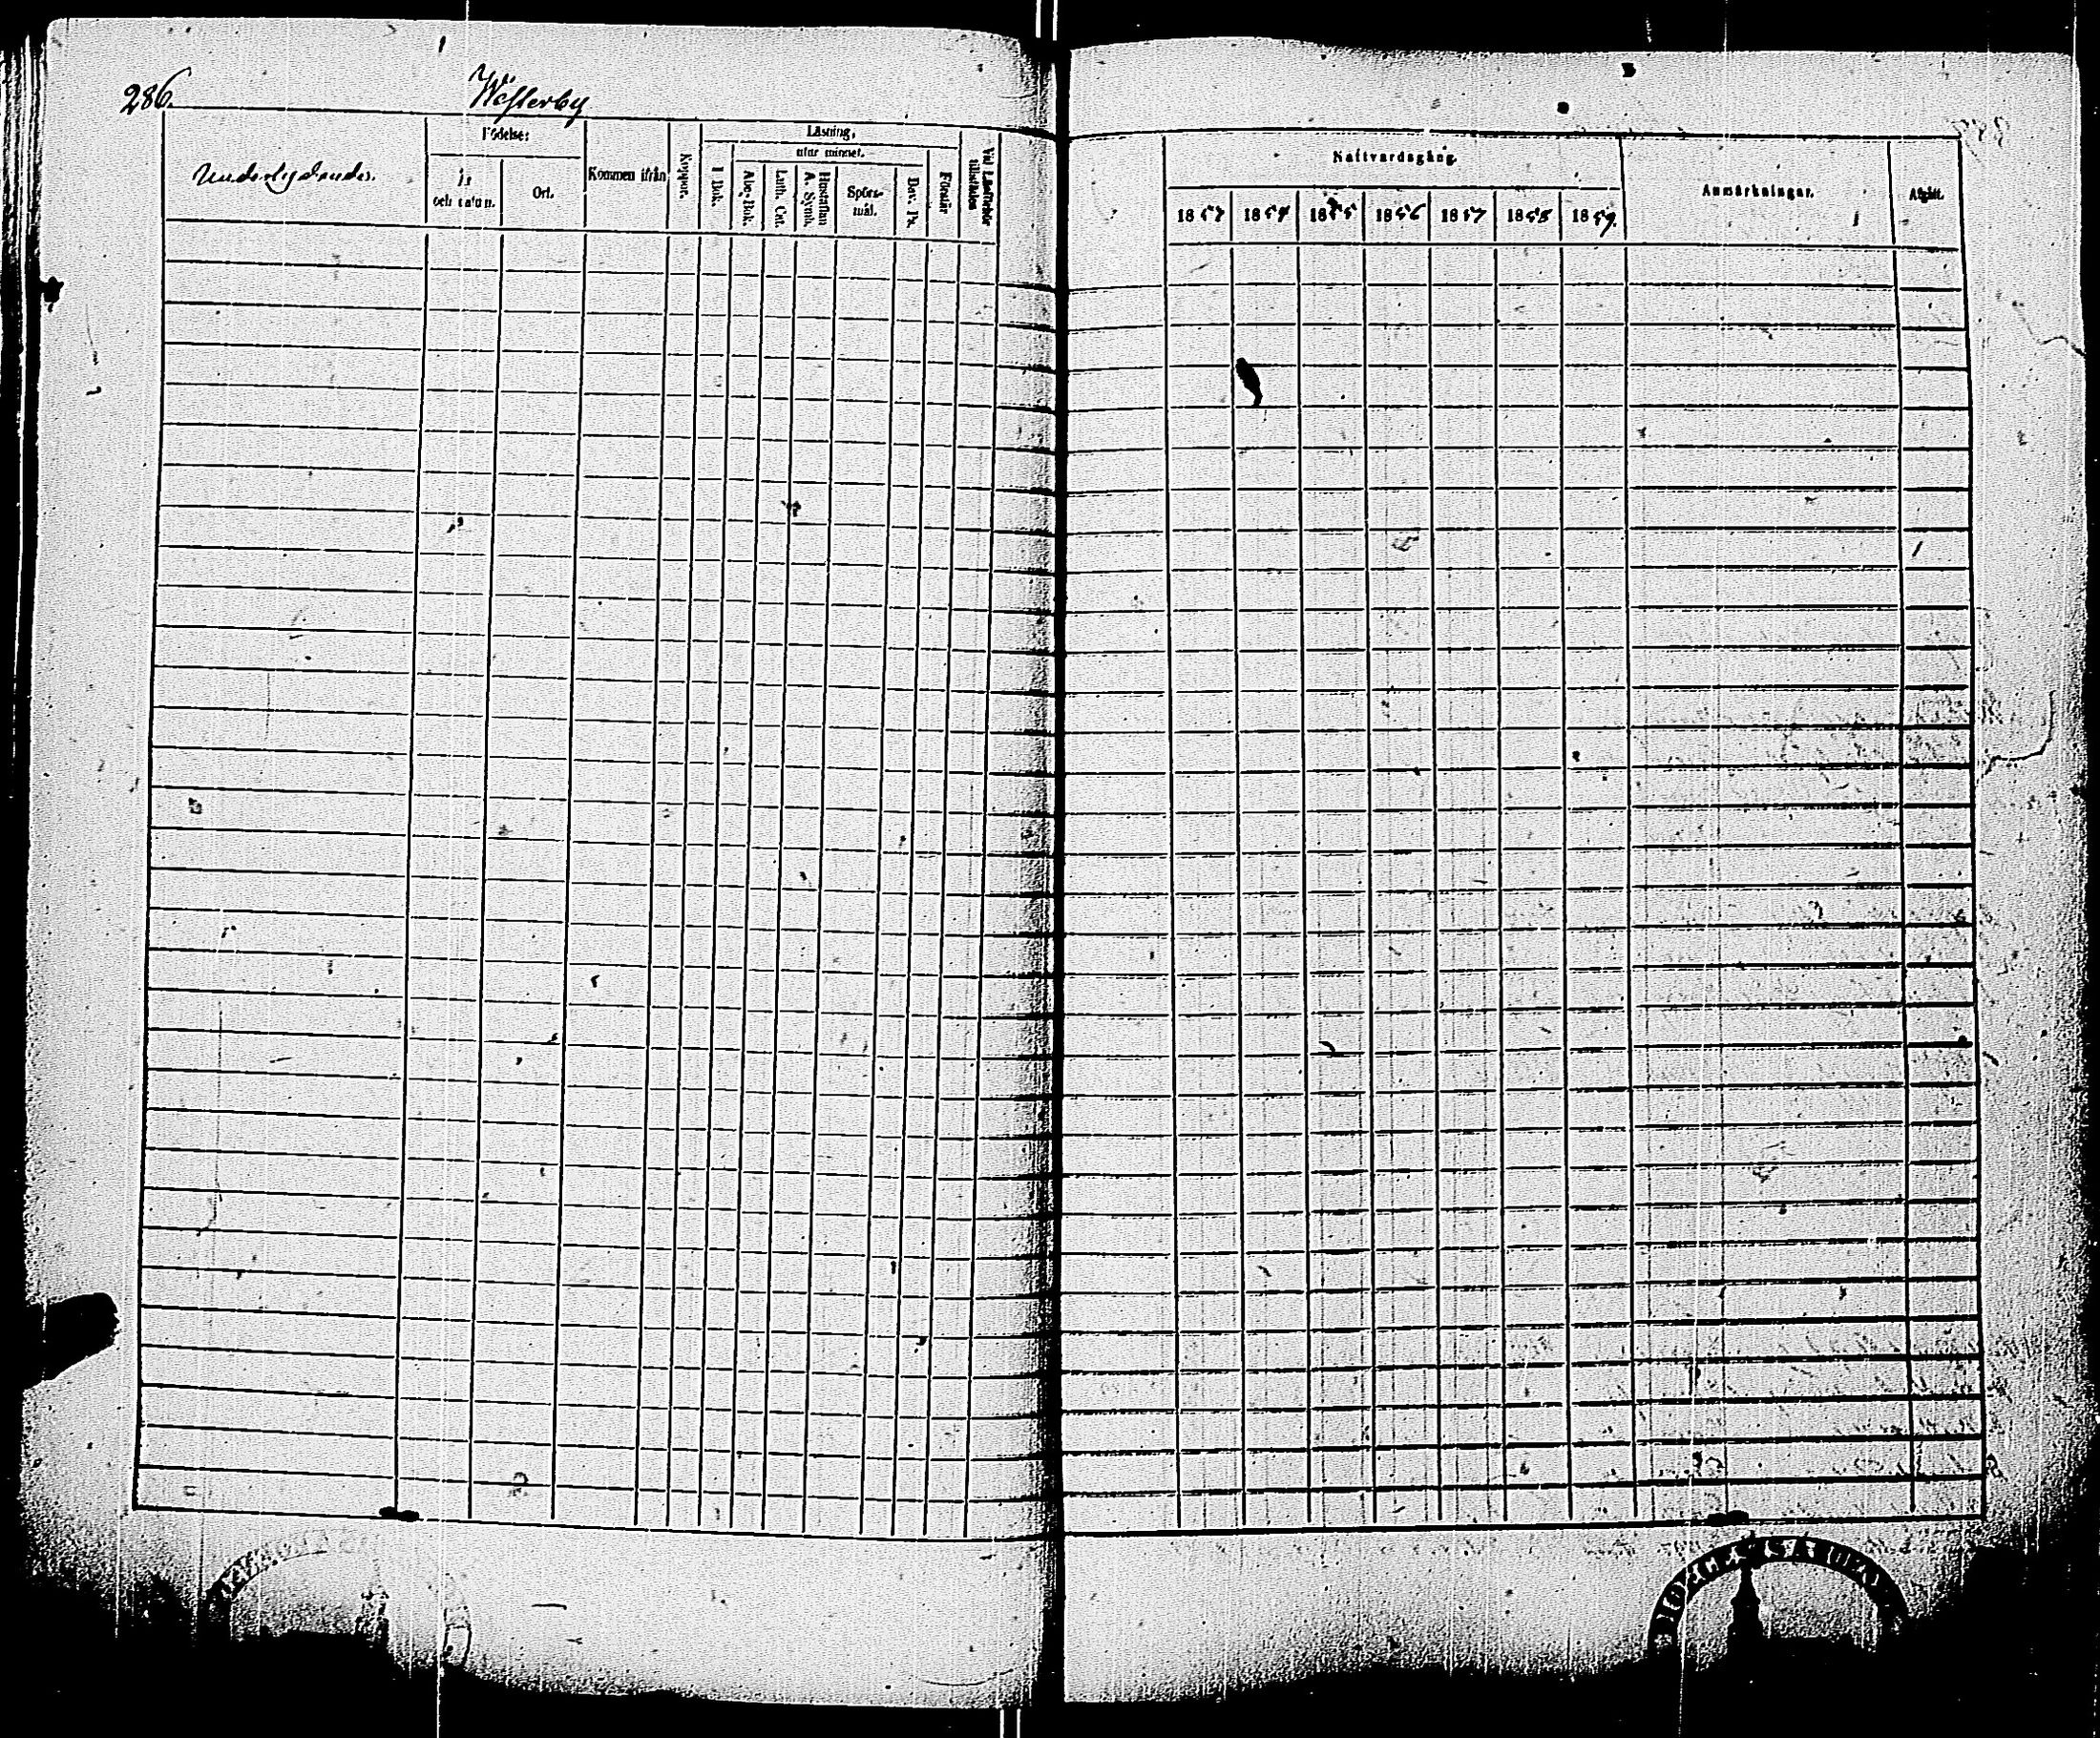 286.
Westerby
Underlydande.
Födelse:
År och datum.
Ort.
Kommen ifrån
Koppor.
Läsning,
utur minnet.
I Bok.
Abc-Bok.
Luth. Cat.
Hustaflan A. Symb.
Spörsmål.
Dav. Ps.
Förstår
Vid Läsförhör tillstädes
Nattvardsgång.
1853 1854 1855 1856 1857 1858 1859.
Anmärkningar.
Afgått.